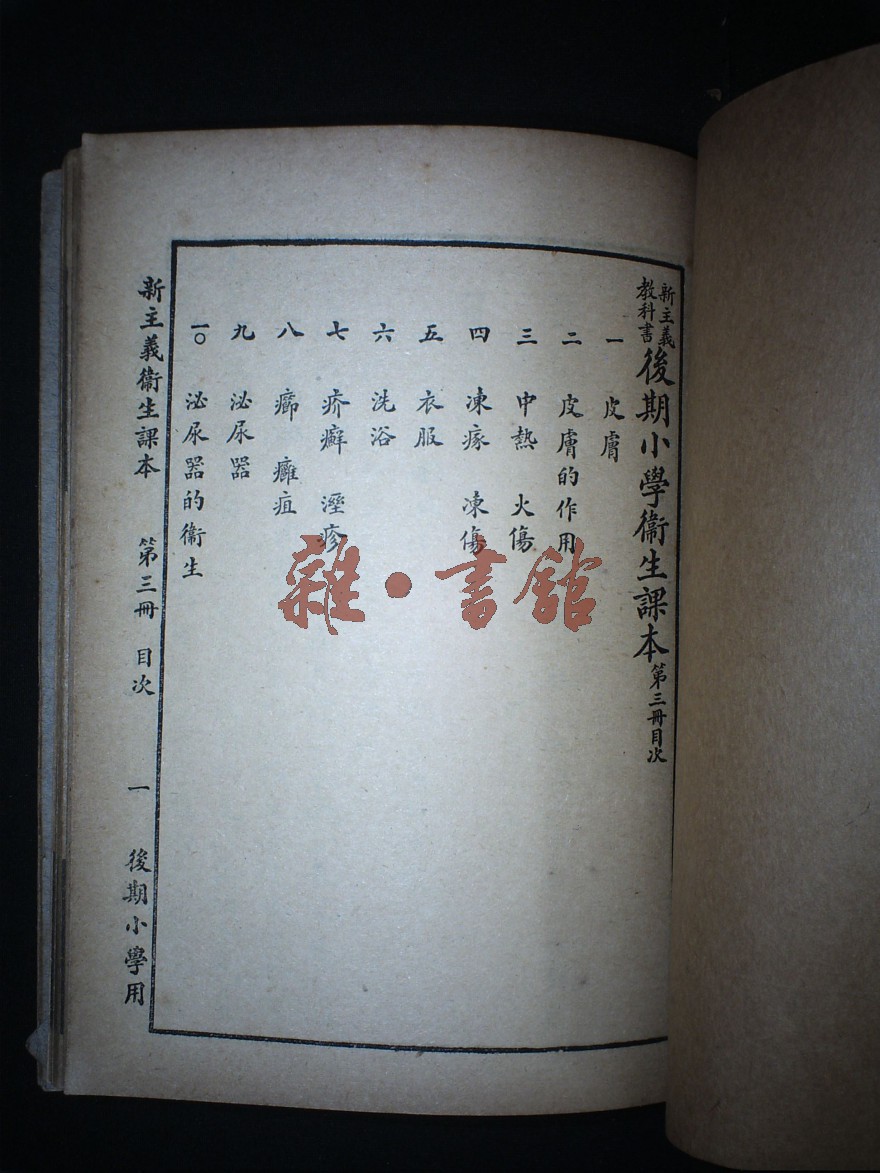 新主義教科書後期小學衞生課本第三冊目次
一 皮膚
二 皮膚的作用
三 中熱 火傷
四 凍瘃 凍傷
五 衣服
六 洗浴
七 疥癬 溼疹
八 癤 癰疽
九 泌尿器
一〇 泌尿器的衞生
新主義衞生課本 第三冊 目次 一 後期小學用
雜·書館